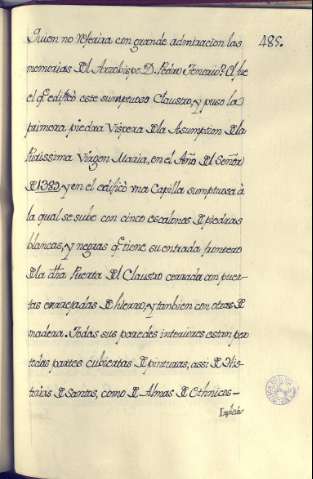 Quien no referira con grande admiracion las
485.
memorias del Arzobispo D. Pedro Tenorio? El fue
el q.e edificò este sumptuoso Claustro, y puso la
primera piedra Vispera de la Asumpcion de la
Purissima Virgen Maria, en el Año del Señor
de 1389 y en el edificò vna Capilla sumptuosa à
la qual se sube con cinco escalones de piedras
blancas, y negras q.e tiene su entrada frontero
de la dha Puerta del Claustro cerrada con puer-
tas enrrejadas de hierro, y tambien con otras de
madera. Todas sus paredes interiores estan por
todas partes cubiertas de pinturas, assi de His-
torias de Santos, como de Almas de Ethnicos-